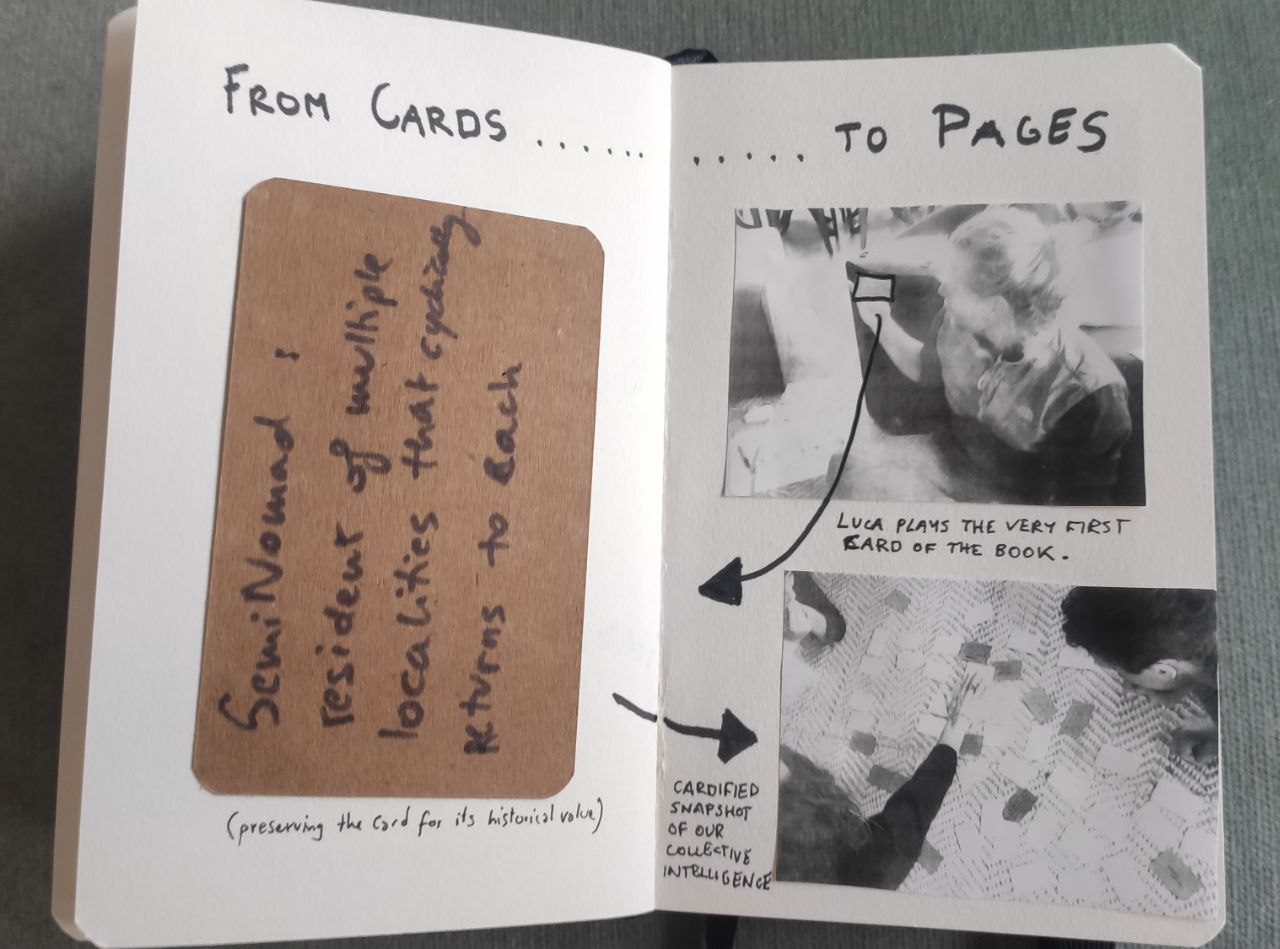 FROM CARDS ......
..... TO PAGES
SemiNomad :
resident of multiple
localities that cyclically
returns to each
(preserving the card for its historical value)
LUCA PLAYS THE VERY FIRST
CARD OF THE BOOK.
CARDIFIED
SNAPSHOT
OF OUR
COLLECTIVE
INTELLIGENCE